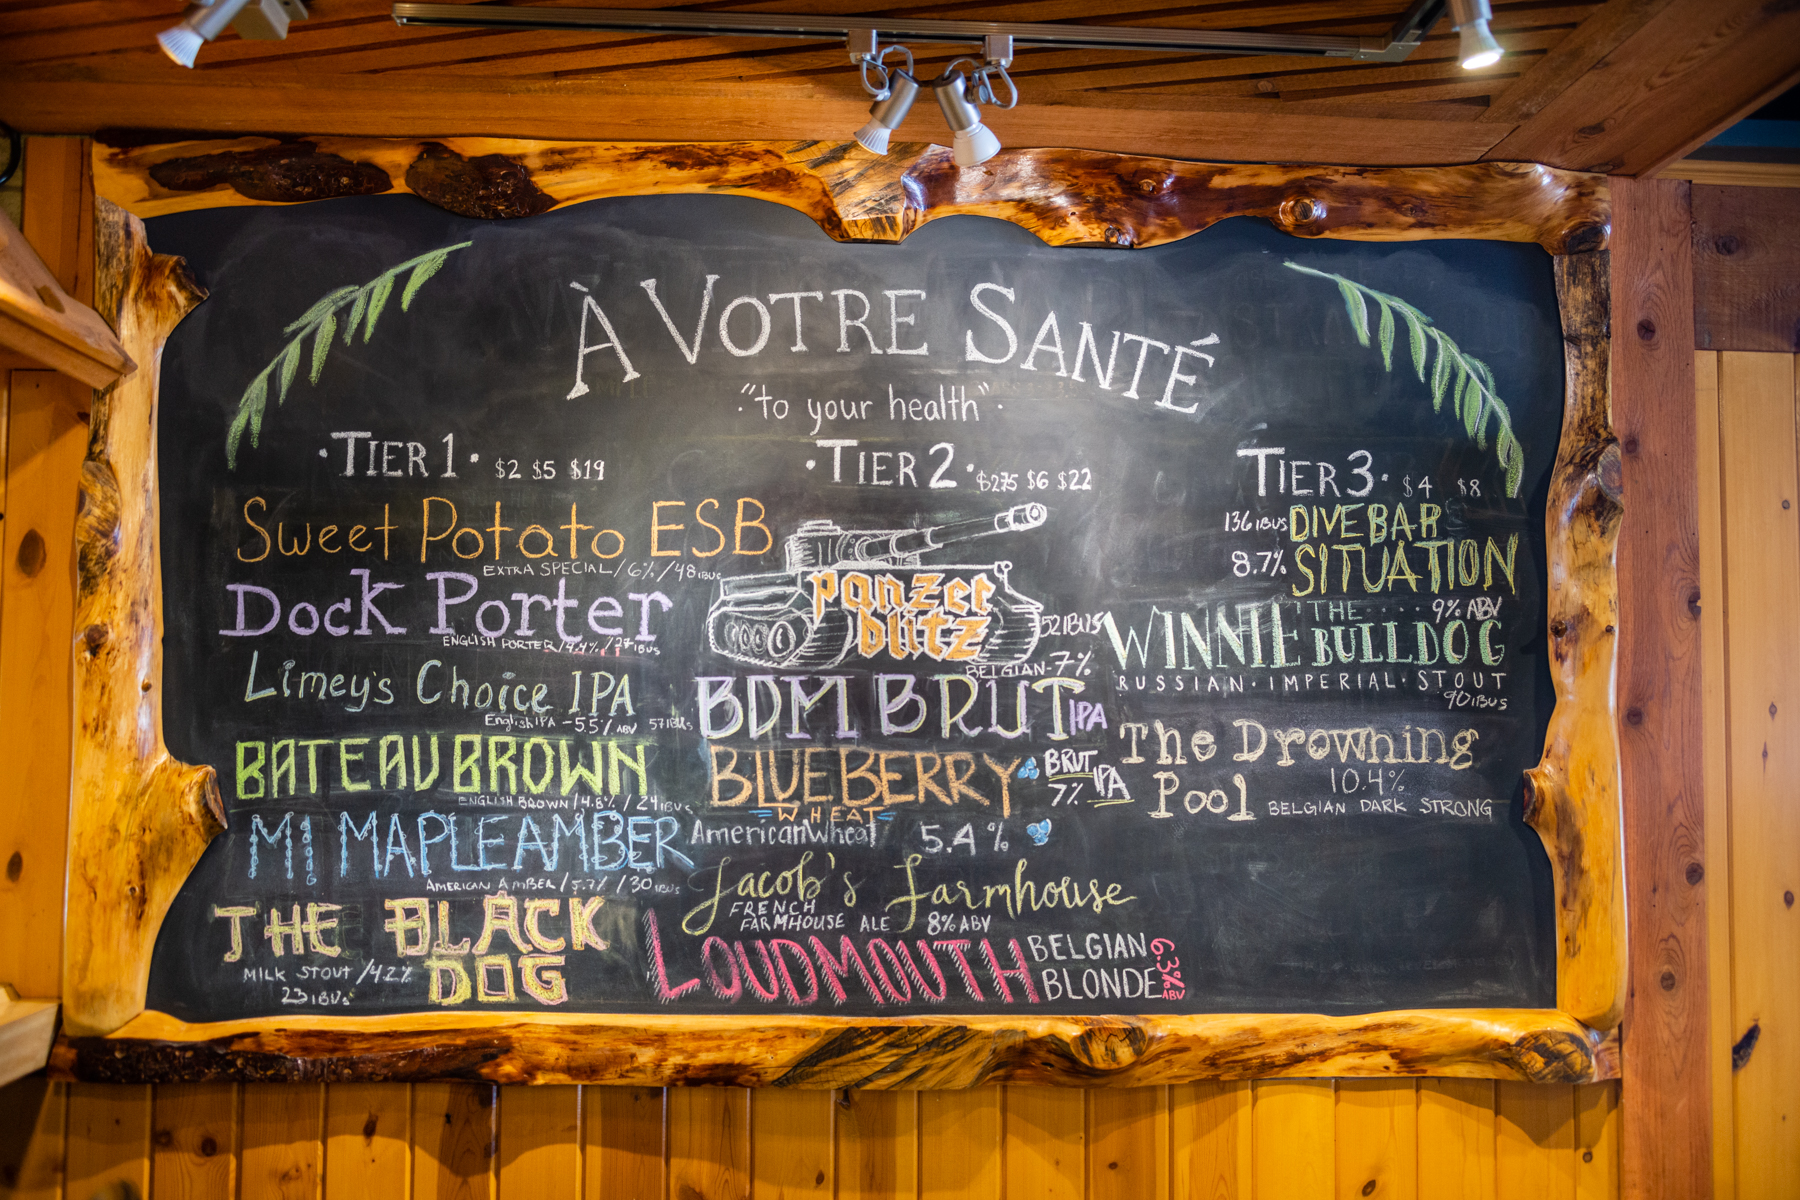 À VOTRE SANTÉ
"to your health"
TIER 1 · $2 $5 $19
Sweet Potato ESB
EXTRA SPECIAL / 6% / 48 IBUs
Dock Porter
ENGLISH PORTER / 4.4% / 27 IBUS
Limey's Choice IPA
English IPA - 5.5% ABV 57 IBUs
BATEAU BROWN
ENGLISH BROWN / 4.8% / 24 IBUs
MI MAPLE AMBER
AMERICAN AMBER / 5.7% / 30 IBUs
THE BLACK
DOG
MILK STOUT / 4.2%
23 IBUs
· TIER 2 · $2.75 $6 $22
panzer
blitz
52 IBUS
BELGIAN - 7%
BDM BRUT IPA
BRUT
IPA
7%
BLUEBERRY
WHEAT
American Wheat 5.4%
Jacob's Farmhouse
FRENCH
FARMHOUSE ALE 8% ABV
LOUDMOUTH
BELGIAN
BLONDE
6.3%
ABV
TIER 3 · $4 $8
136 IBUS DIVE BAR
8.7% SITUATION
WINNIE THE .... 9% ABV
BULLDOG
RUSSIAN · IMPERIAL · STOUT
90 IBUS
The Drowning
Pool
10.4%
BELGIAN DARK STRONG